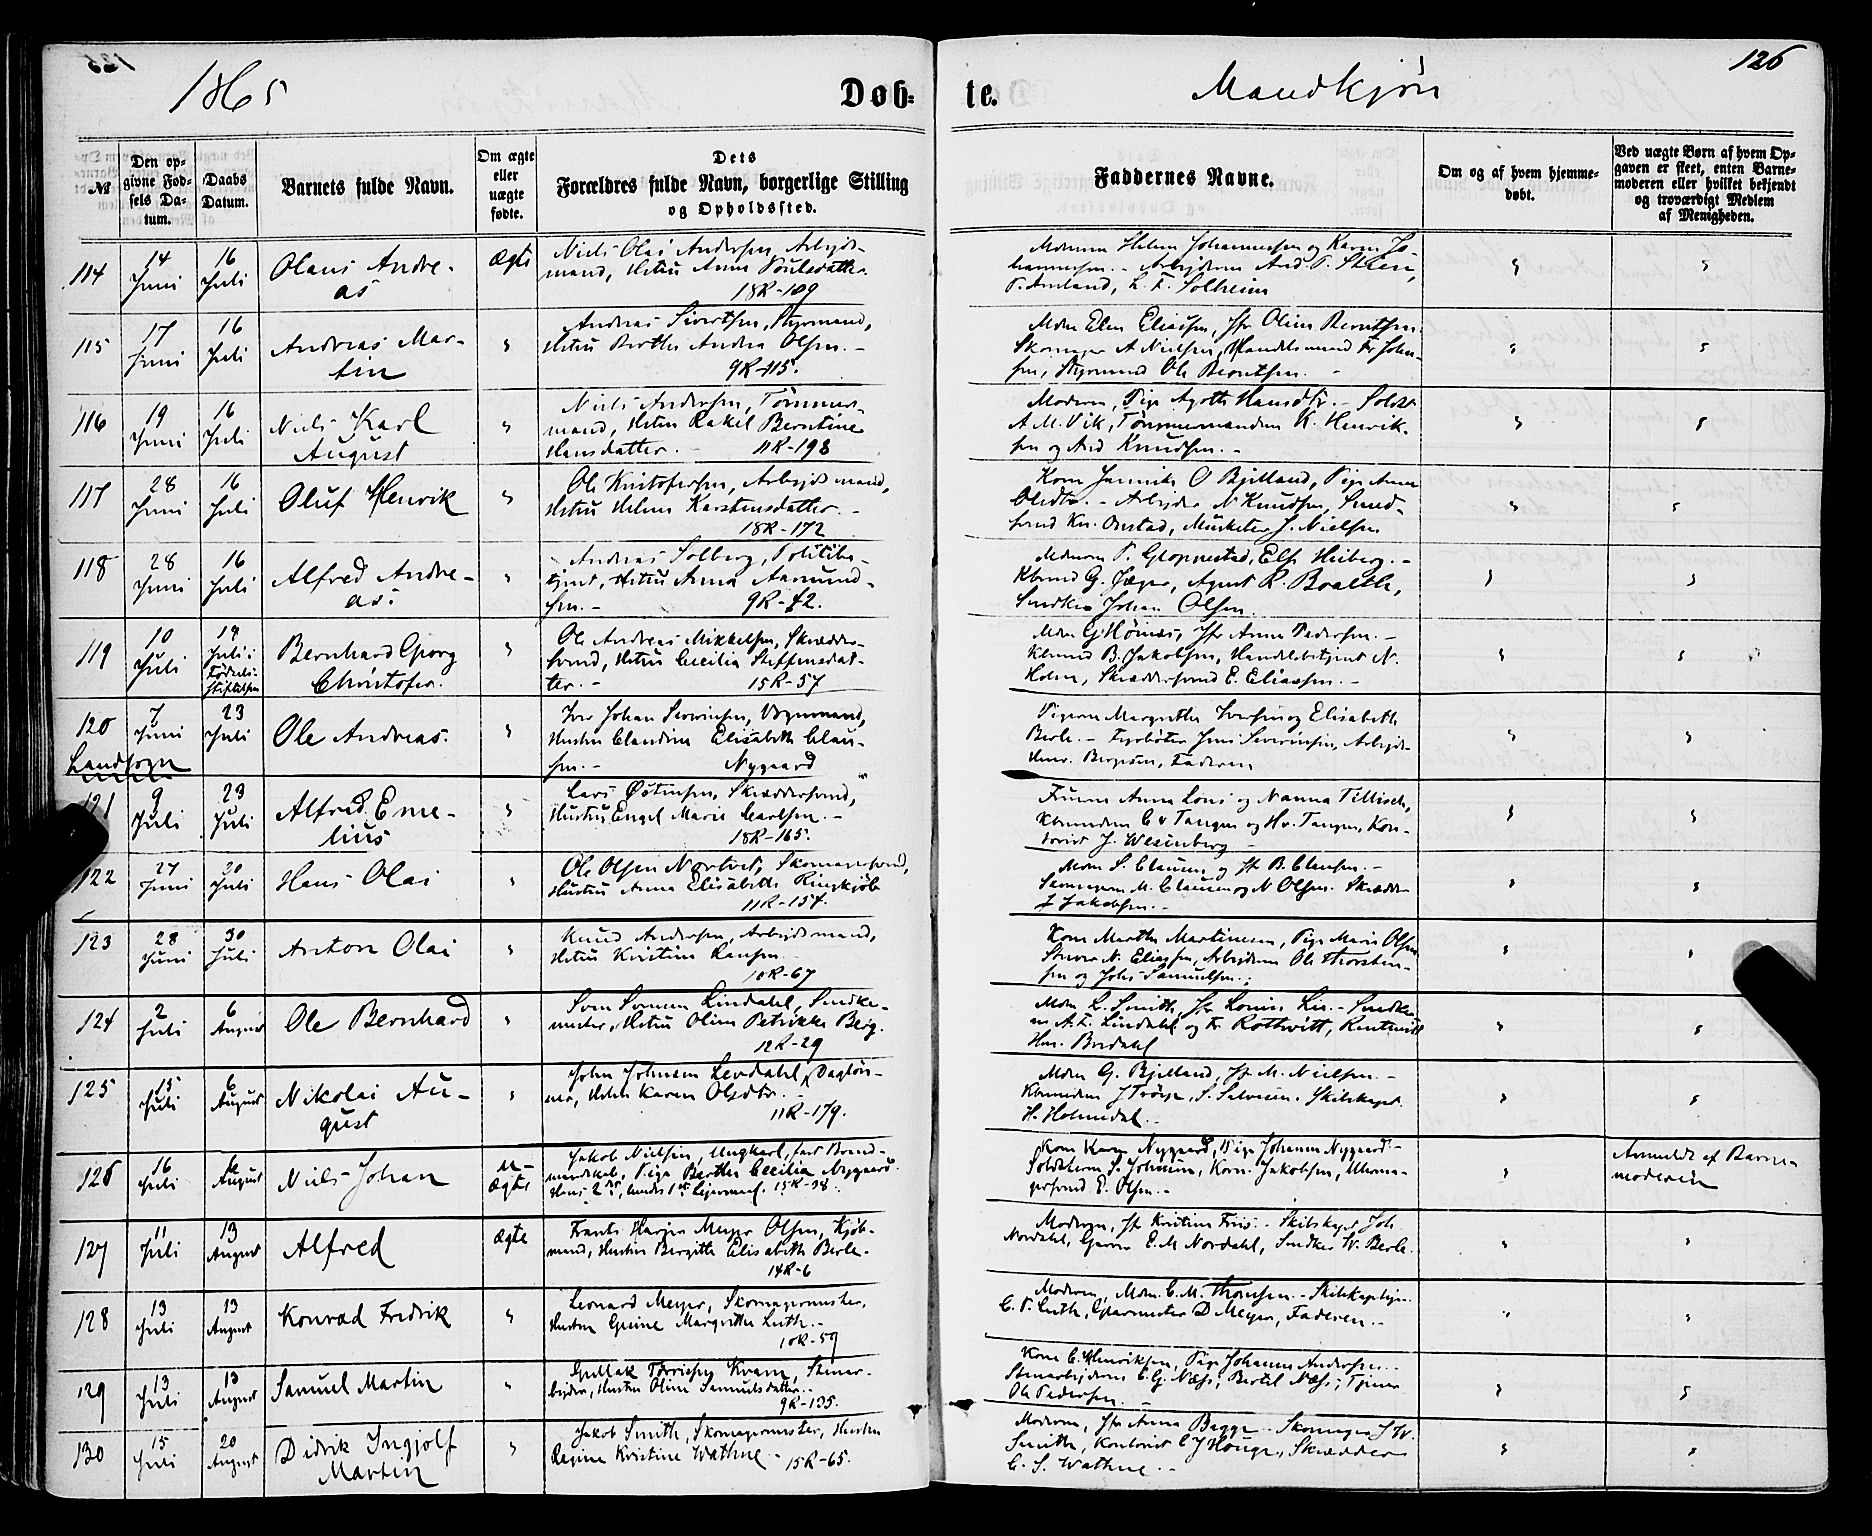 1865
Døb=
te.
Mandkjön
126
№
Den op-
givne Fød-
sels Da-
tum.
Daabs
Datum.
Barnets fulde Navn.
Om ægte
eller
uægte
fødte.
Dets
Forældres fulde Navn, borgerlige Stilling
og Opholdssted.
Faddernes Navne.
Om og af hvem hjemme-
døbt.
Ved uægte Børn af hvem Op-
gaven er skeet, enten Barne-
moderen eller hvilket bekjendt
og troværdigt Medlem
af Menigheden.
114
14
Juni
16
Juli
Olaus Andre-
as
Ægte
Niels Olai Andersen, Arbejds-
mand, Hstru Anna Poulsdatter.
18R-109
Moderen Helene Johannessen og Karen Jo-
hannessen. - Arbejderen And. P. Steen,
P. Amland, L. T. Solheim
115
17
Juni
16
Juli
Andreas Mar-
tin
Andreas Sivertsen, Styrmand,
Hstru Berthe Andrea Olsen. -
9R-115.
Mdm Elen Eliassen, Jfr Oline Berntsen
Skomager A Nielsen, Handelsmand Fr. John-
sen, Styrmand Ole Berntsen. -
116
19
Juni
16
Juli
Niels Karl
August
Niels Andersen, Tømmer-
mand, Hstru Rakel Berntine
Hansdatter. - 11R-198
Moderen, Pige Agathe Hansdtr. - Soldat
A. M. Vik, Tømmermændene K. Henrik-
sen og And Knudsen. -
117
28
Juni
16
Juli
Oluf Henrik
Ole Kristofersen, Arbejdsmand,
Hstru Helene Karstensdatter. -
18R-172
Kone Jannike O Bjelland, Pige Anna
Olsdtr. - Arbejder N Knudsen, Smed-
svend Kn. Onstad, Musketer J. Nielsen
118
28
Juni
16
Juli
Alfred Andre-
as.
Andreas Solberg, Politibe-
tjent, Hstru Anna Aamund-
sen. - 9R-42.
Moderen P. Gloppestad, Elise Heiberg. -
Kbmand G. Jæger, Agent R. Boalth,
Snedker Johan Olsen.
119
10
Juli
19
Juli i
Fødsels-
stiftelsen
Bernhard Georg
Christofer.
Ole Andreas Mikkelsen, Skrædder-
svend, Hstru Cecilia Steffensdat-
ter. - 15R-57
Mdm G Hörnæs, Jfr Anna Pedersen. -
Kbmand B. Jakobsen, Handelsbetjent N.
Holm, Skræddersvend E. Eliassen. -
120
Landsogn
7
Juni
23
Juli
Ole Andreas.
Iver Johan Severinsen, Vognmand,
Hustru Claudine Elisabeth Clau-
sen. - Nygaard
Pigerne Margrethe Iversen og Elisabeth
Berle. - Fyrbøter Jens Severinsen, Arbejds-
Bergesen, Faderen
121
9
Juli
23
Juli
Alfred Eme-
lius
Lars Østensen, Skræddersvend,
Hustru Engel Marie Carlsen. -
18R-165.
Fruerne Anna Lous og Nanna Tillisch,
Kbmændene C v Tangen og H v. Tangen, Kon-
torist J. Wesenberg -
122
27
Juni
30
Juli
Hans Olai
Ole Olsen Nortvet, Skomagersvend,
Hustru Anna Elisabeth Ringkjöb
11R-154.
Mdm S. Clausen og Jfr B. Clausen. -
Skomagerne M. Clausen og N Olsen. Skrædder
J Jakobsen. -
123
28
Juni
30
Juli
Anton Olai
Knud Andersen, Arbejdsmand,
Hstru Kristine Hansen
10R-67
Kone Marthe Martinesen, Pige Marie Olsen
Skriver N. Eliassen, Arbejderne Ole Thorsten-
sen og Johs Samuelsen.;
124
2
Juli
6
August
Ole Bernhard
Sven Svensen Lindahl, Snedker-
mester, Hstru Oline Petrikke Berg.
12R-29
Mdm L. Smith, Jfr Louise Lie. - Snedker-
ne A. L. Lindahl og Fr Rothwitt, Rentenist
Hm. Bredahl
125
15
Juli
6
August
Nikolai Au-
gust
John Johnsen Levdahl, Dagløn-
ner, Hstru Karen Olsdtr. -
11R-179.
Mdm G. Bjelland, Jfr M. Nielsen. -
Kbmændene J Tröye, S. Salvesen. Skibskapt.
H. Holmedal. -
126
16
Juli
6
August
Niels Johan
U-
ægte
Jakob Nielsen, Ungkarl, fast Brand-
mandskab, Pige Berthe Cecilia Nygaard.
Hans 2det, hendes 1ste Lejermaal. 15R-38.
Kone Karen Nygaard, Pige Johanna Nygaard. -
Soldaterne S. Johnsen, Korn. Jakobsen, Uhrma-
gersvend E. Olsen. -
Anmeldt af Barne-
moderen
127
11
Juli
13
August
Alfred
Ægte
Frants Harger Meyer Olsen, Kjöb-
mand, Hustru Bergitte Elisabeth Berle-
14R-6
Moderen, Jfr Kristine Friis. - Skibskapt Joh.
Nordahl, Garver E. M Nordahl, Snedker W. Berle.
128
13
Juli
13
August
Konrad Fredrik
Leonard Meyer, Skomagermester,
Hustru Gesine Margrethe Luth. -
10R-59
Moderen, Mdm C. M. Thomsen. - Skibskaptejn
C. P. Luth, Glarmester D Meyer, Faderen. -
129
13
Juli
13
August
Samuel Martin
Gullak Torrissen Kvam, Stenar-
bejder, Hustru Oline Samuelsdatter. -
9R-135.
Kone C. Henriksen, Pige Johanna Andersen. -
Stenarbejderne C. G. Næss, Bertel Næss, Tjener
Ole Pedersen. -
130
15
Juli
20
August
Didrik Ingjolf
Martin
Jakob Smith, Skomagermester, Hustru
Regine Kristine Wathne - 15R-65.
Moderen, Jfr Anna Bagge. - Skomager J W.
Smith, Kontorist C J Houge, Skrædder
C. S. Wathne. -